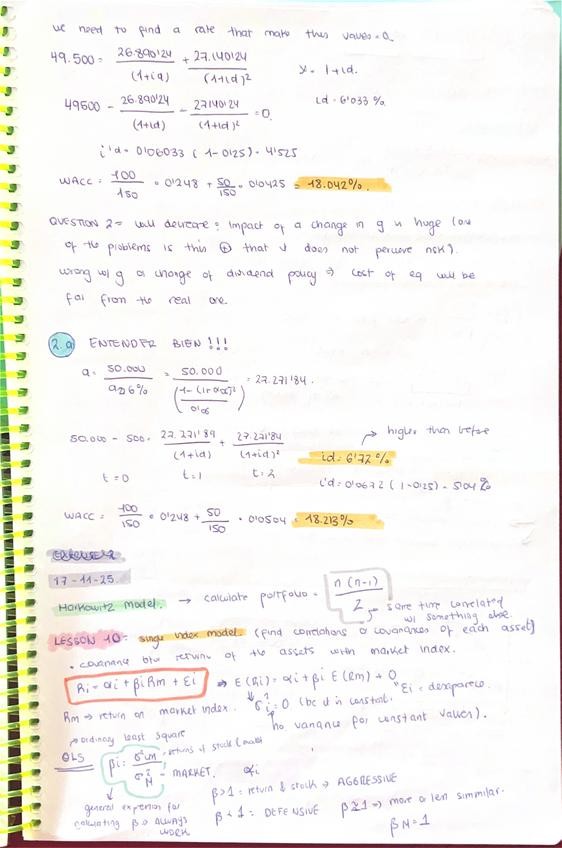 we need to find a rate that make this values = 0.
49.500 = 26.890'24 / (1+id) + 27.140'24 / (1+id)² x = 1+id.
49500 - 26.890'24 / (1+id) - 27140'24 / (1+id)² = 0. id = 6'033 %
i'd = 0'06033 (1-0'25) = 4'525
WACC = 100/150 · 0'248 + 50/150 · 0'0425 = 18.042%.
QUESTION 2 = will decrease = impact of a change in g is huge (one
of the problems is this ⊕ that it does not perceive risk).
wrong w/ g or change of dividend policy ⇒ cost of eq will be
far from the real one.
2.a ENTENDER BIEN !!!
a = 50.000 / a2¬6% = 50.000 / (1-(1+0'06)^-2 / 0'06) = 27.271'84.
50.000 - 500 = 27.271'84 / (1+id) + 27.271'84 / (1+id)² → higher than before
id = 6'72 %
t=0 t=1 t=2 i'd = 0'0672 (1-0'25) = 5'04 %
WACC = 100/150 · 0'248 + 50/150 · 0'0504 = 18.213%
17-11-25
Markowitz model. → calculate portfolio = n(n-1) / 2 → same time correlated
w/ something else.
LESSON 10 = single index model. (find correlations or covariances of each asset)
· covariance btw return of the assets with market index.
Ri = αi + βi Rm + Ei ⇒ E(Ri) = αi + βi E(Rm) + 0
"Ei = desaparece
Rm ⇒ return on market index. σi = 0 (bc it is constant.
no variance for constant values).
ordinary least square
OLS βi = σiM / σ²M → returns of stock / market
- MARKET. αi
β > 1 = return & stock → AGGRESSIVE
general expression for β < 1 = DEFENSIVE β ≅ 1 ⇒ more or less simmilar.
calculating β ⇒ ALWAYS
WORK β M = 1